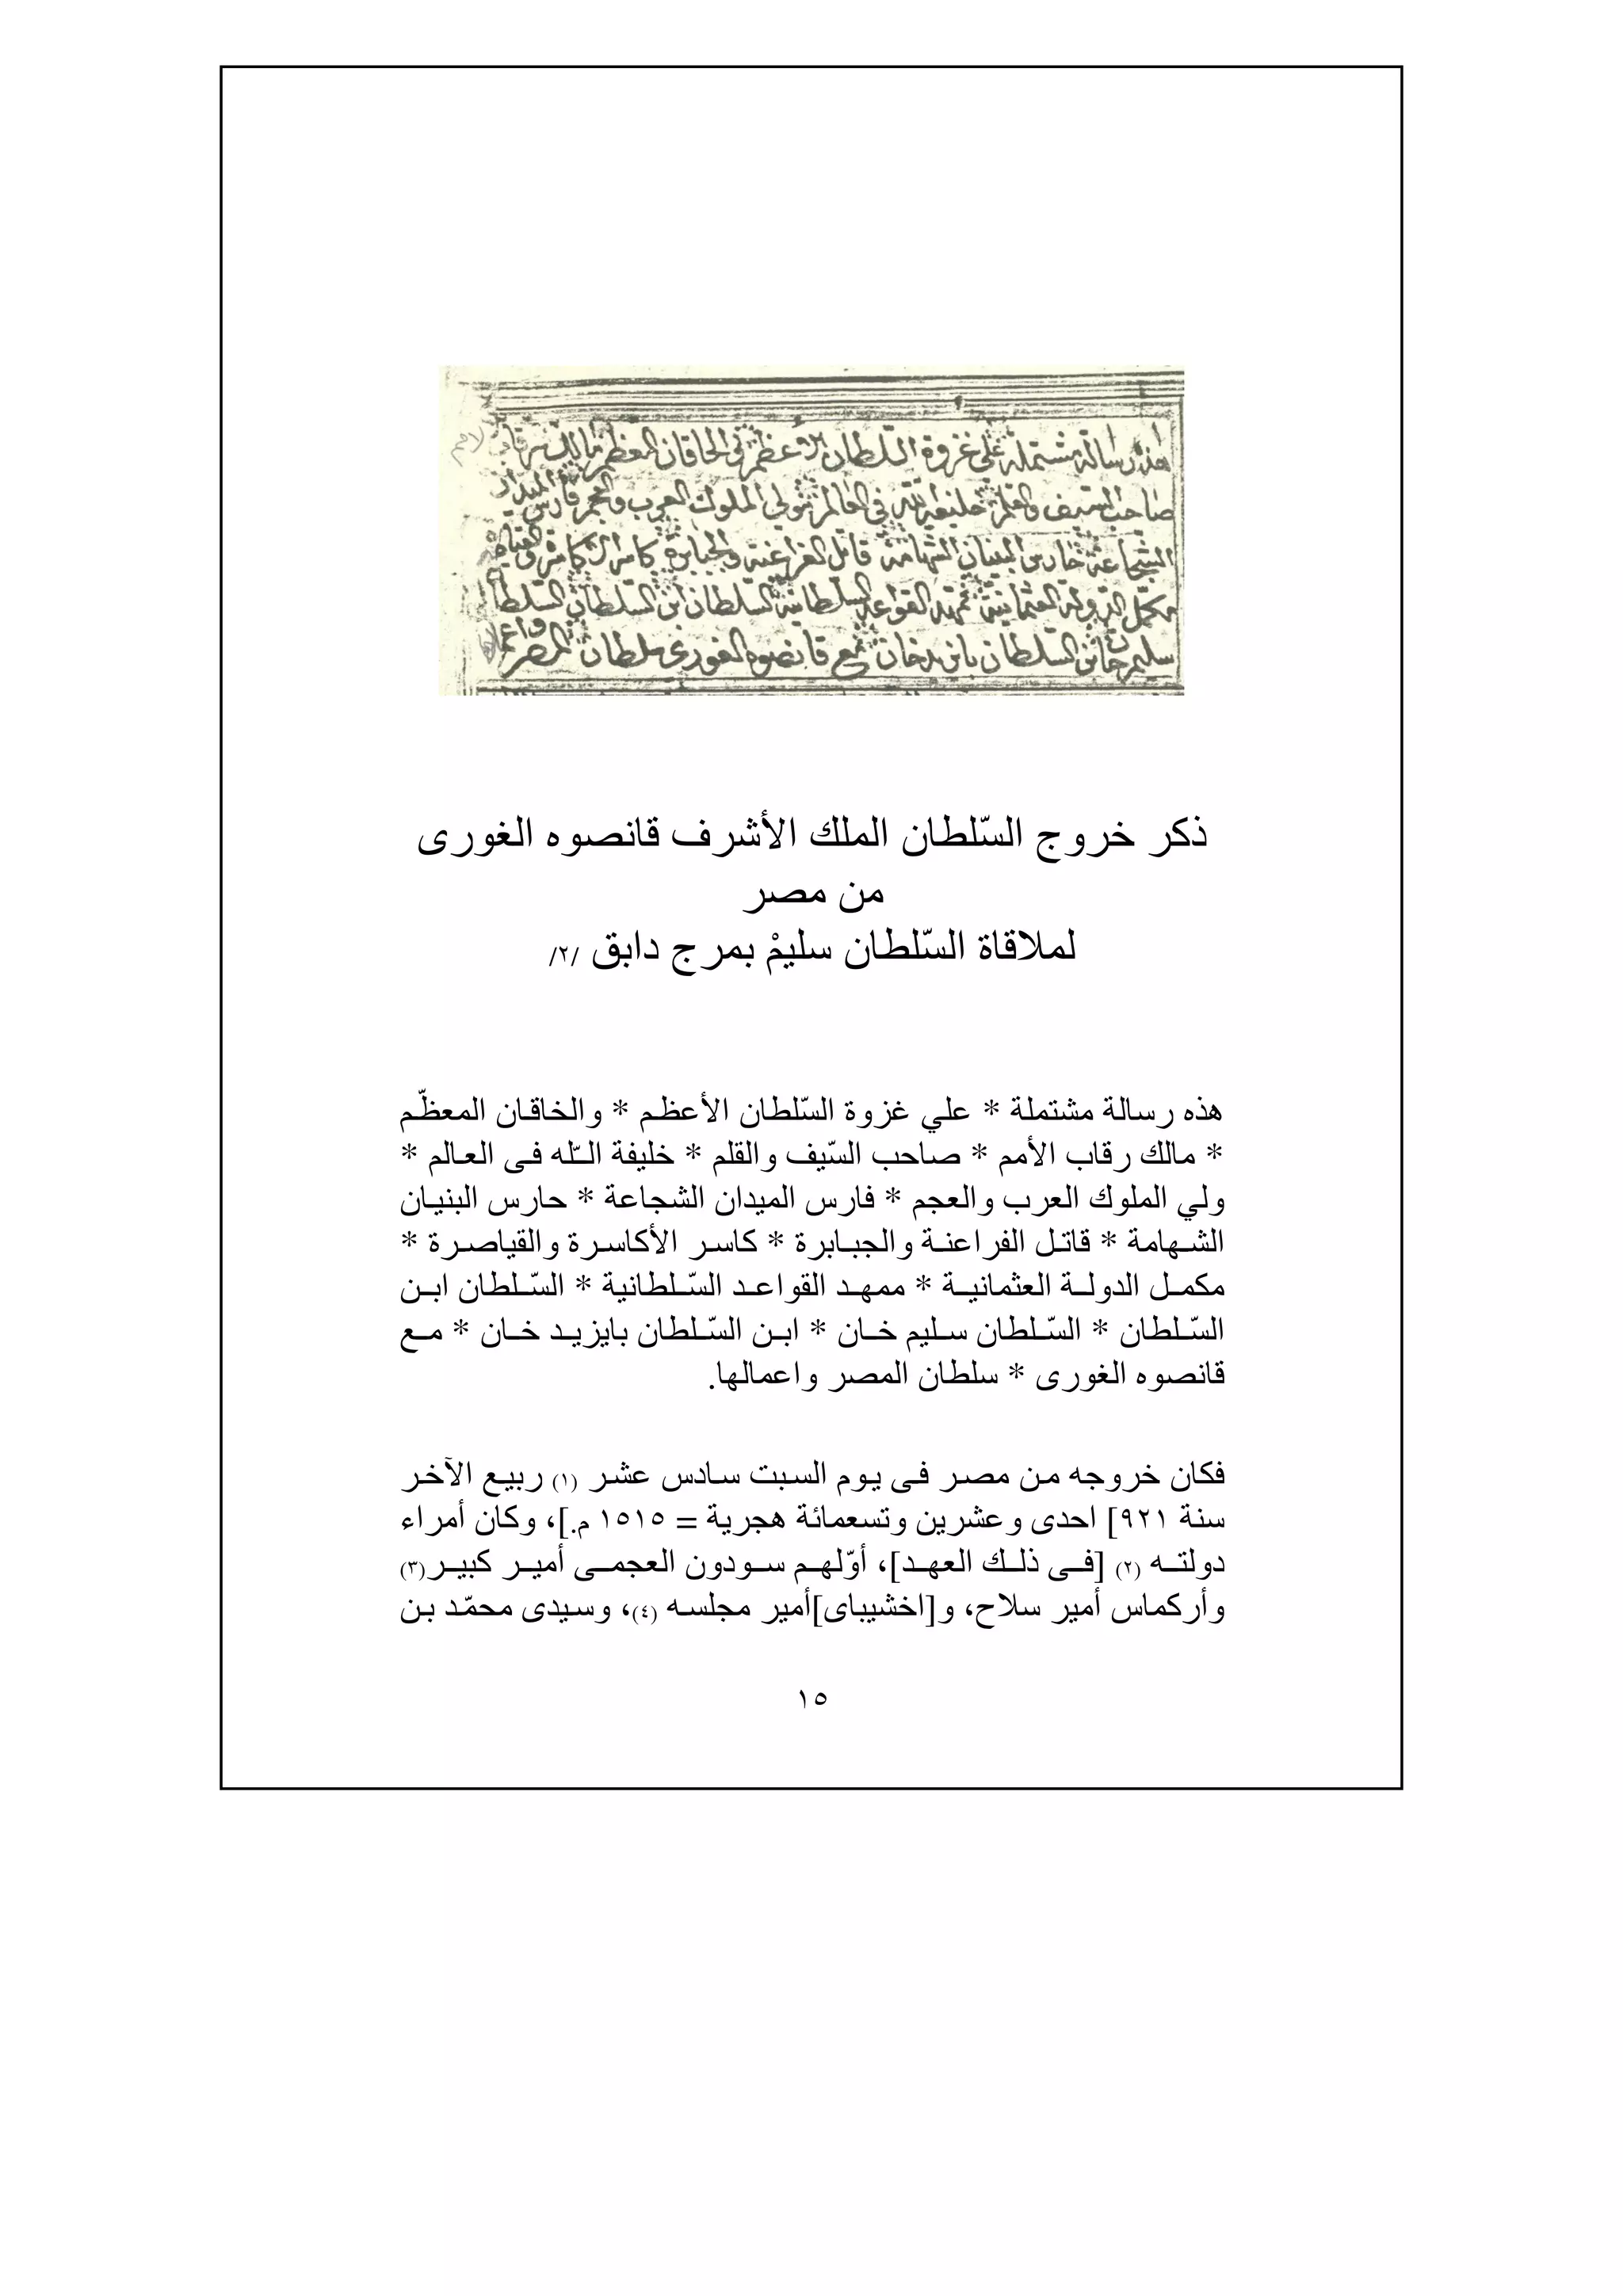 هذه رسالة مشتملة على غزوة السلطان الأعظم والخاقان المعظم مالك رقاب
صاحب السيف والقلم خليفة الله في العالم ولي الملوك العرب والعجم فارس الميدان
الشجاعة حارس البنيان الشهامة قاتل الفراعنة والجبابرة كاسر الأكاسرة
مكمل الدولة العثمانية ممهد القواعد السلطانية السلطان ابن السلطان السلطان
سليم خان ابن السلطان بايزيد خان مع قانصوه الغورى سلطان المصر واعمالها
ذكر خروج السّلطان الملك الأشرف قانصوه الغورى
من مصر
لملاقاة السّلطان سليمْ بمرج دابق /٢/
هذه رسالة مشتملة * علي غزوة السّلطان الأعظم * والخاقان المعظّم
* مالك رقاب الأمم * صاحب السّيف والقلم * خليفة اللّه فى العالم *
ولي الملوك العرب والعجم * فارس الميدان الشجاعة * حارس البنيان
الشهامة * قاتل الفراعنة والجبابرة * كاسر الأكاسرة والقياصرة *
مكمل الدولة العثمانية * ممهد القواعد السّلطانية * السّلطان ابن
السّلطان * السّلطان سليم خان * ابن السّلطان بايزيد خان * مع
قانصوه الغورى * سلطان المصر واعمالها.
فكان خروجه من مصر فى يوم السبت سادس عشر (١) ربيع الآخر
سنة ٩٢١ [ احدى وعشرين وتسعمائة هجرية = ١٥١٥ م.]، وكان أمراء
دولته (٢) [فى ذلك العهد]، أوّلهم سودون العجمى أمير كبير(٣)
وأركماس أمير سلاح، و[اخشيباى]أمير مجلسه (٤)، وسيدى محمّد بن
١٥